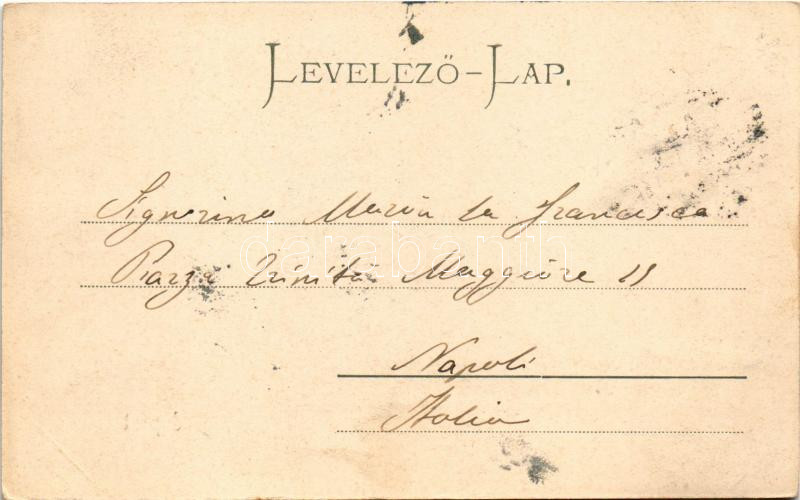 LEVELEZŐ-LAP.
Signorina Maria la Francesca
Piazza Trinità Maggiore 19
Napoli
Italia
darabanth